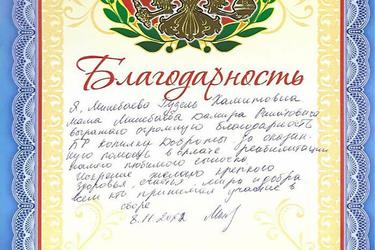 Благодарность
Я, Минебаева Гузель Хамитовна
мама Минебаева Далира Ринатовича
выражаю огромную благодарность
БФ копилка Доброты за оказан-
ную помощь в реабилитации
моего любимого сыночка
Искренне желаем крепкого
здоровья, счастья, мира и добра
всем кто принимал участие в
сборе